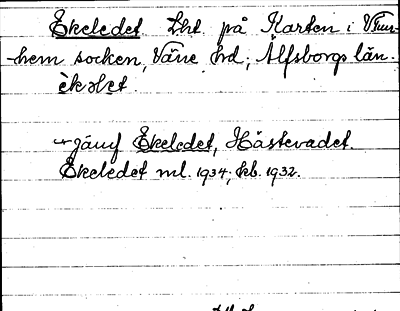 Ekeledet Lht. på Karten i Vänershem socken, Väne hd; Älfsborgs län.
èkəlet.
jämf Ekeledet, Hästevadet.
Ekeledet ml. 1934; kb. 1932.